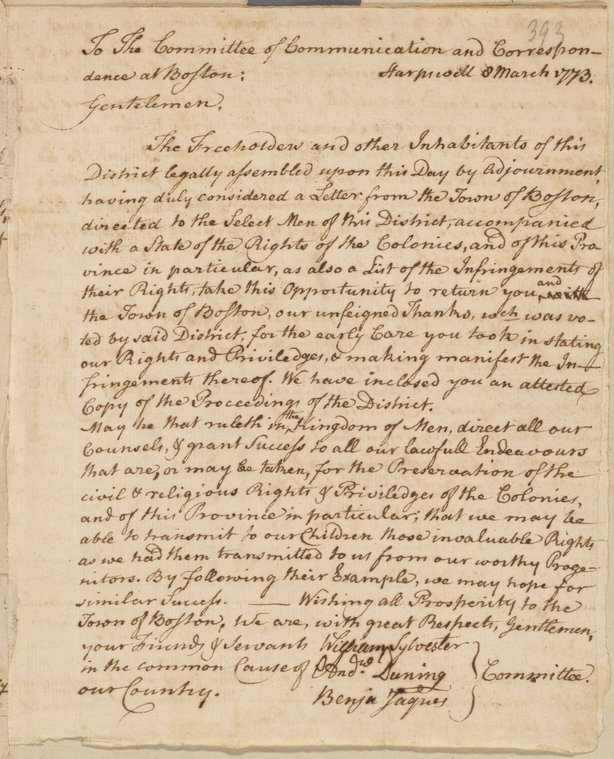 393
To The Committee of Communication and Correspon-
dence at Boston;
Harpswell 8 March 1773.
Gentelemen,
The Freeholders and other Inhabitants of this
District legally assembled upon this Day by Adjournment,
having duly considered a Letter from the Town of Boston,
directed to the Select Men of this District, accompanied
with a State of the Rights of the Colonies, and of this Pro
vince in particular, as also a List of the Infringements of
their Rights, take this Opportunity to return you, and
the Town of Boston, our unfeigned Thanks, wch was vo-
ted by said District, for the early Care you took in stating
our Rights and Priviledges, & making manifest the In-
fringements thereof. We have inclosed you an attested
Copy of the Proceedings of the District.
May he that ruleth in the Kingdom of Men, direct all our
Counsels, & grant Success to all our lawfull Endeavours
that are, or may be taken, for the Preservation of the
civil & religious Rights & Priviledges of the Colonies,
and of this Province in particular; that we may be
able to transmit to our Children those invaluable Rights
as we had them transmitted to us from our worthy Proge-
nitors. By following their Example, we may hope for
similar Success. — Wishing all Prosperity to the
Town of Boston, We are, with great Respects, Gentlemen,
your Friends & Servants William Sylvester
in the common Cause of Andw. Duning Committee.
our Country. Benja Jaques